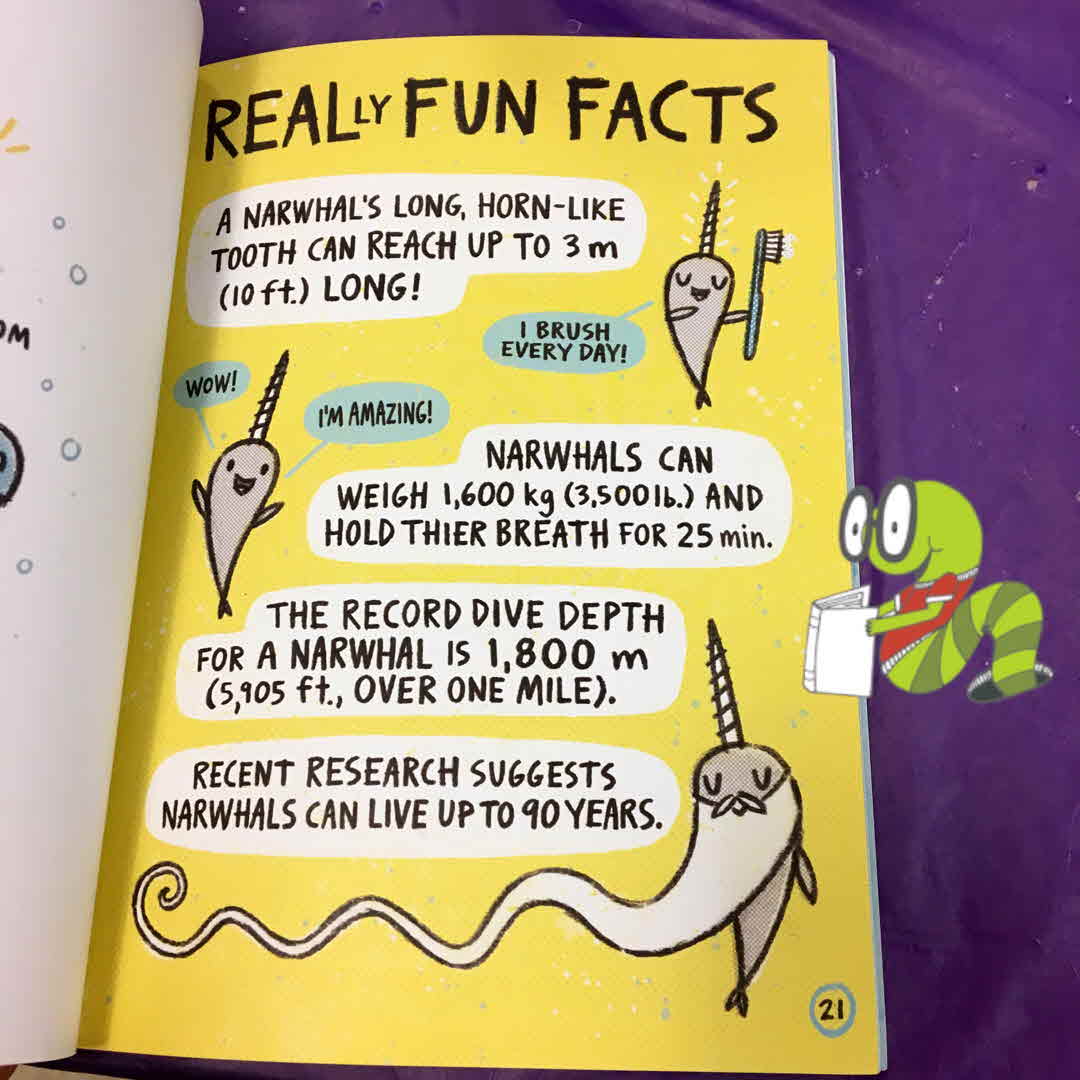 REALLY FUN FACTS
A NARWHAL'S LONG, HORN-LIKE
TOOTH CAN REACH UP TO 3 m
(10 ft.) LONG!
I BRUSH
EVERY DAY!
WOW!
I'M AMAZING!
NARWHALS CAN
WEIGH 1,600 kg (3,500 lb.) AND
HOLD THIER BREATH FOR 25 min.
THE RECORD DIVE DEPTH
FOR A NARWHAL IS 1,800 m
(5,905 ft., OVER ONE MILE).
RECENT RESEARCH SUGGESTS
NARWHALS CAN LIVE UP TO 90 YEARS.
21